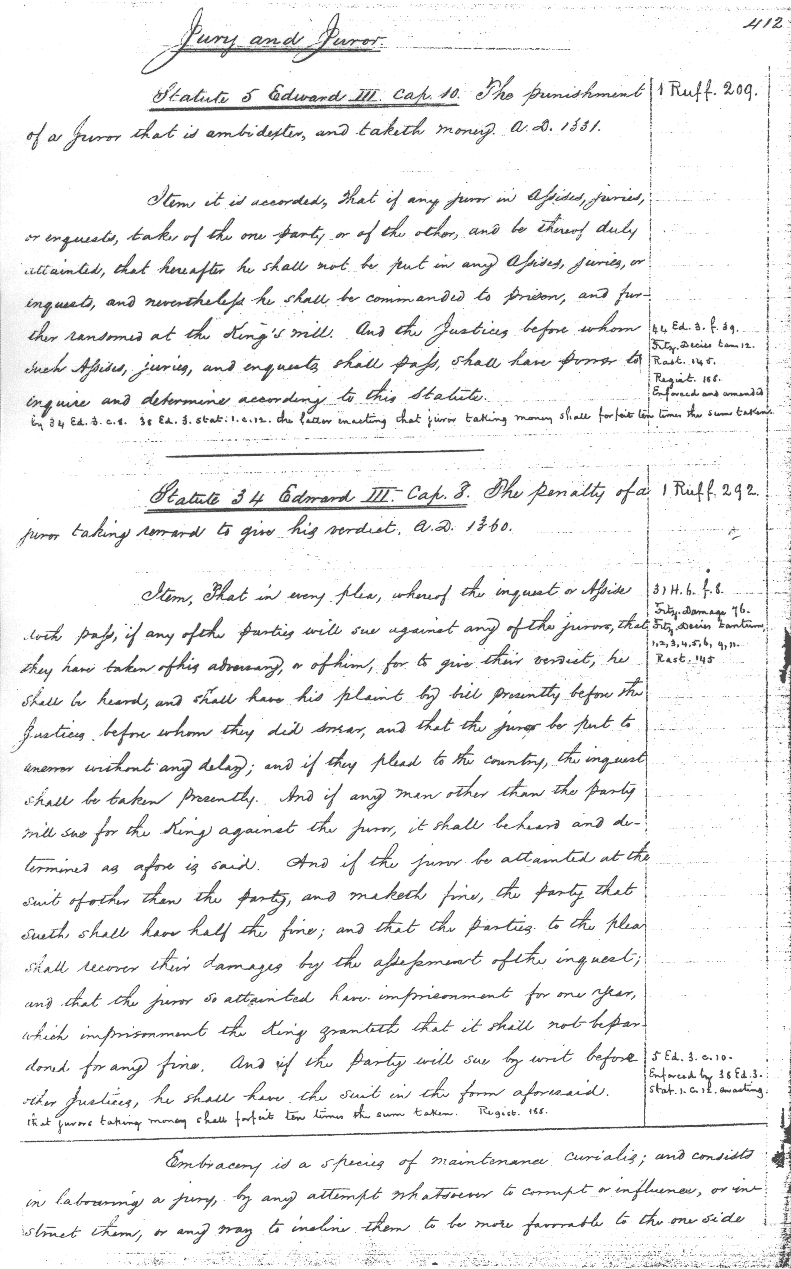 412
Jury and Juror.
Statute 5 Edward III. Cap. 10. The punishment
1 Ruff. 209.
of a Juror that is ambidexter, and taketh money. A.D. 1331.
Item it is accorded, That if any juror in Assises, juries,
or enquests, take of the one party or of the other, and be thereof duly
attainted, that hereafter he shall not be put in any Assises, juries, or
inquests, and nevertheless he shall be commanded to prison, and fur-
ther ransomed at the King's will. And the Justices before whom
such Assises, juries, and enquests shall pass, shall have power to
inquire and determine according to this Statute.
44 Ed. 3. f. 39.
Fitz. Decies tam 12.
Rast. 145.
Regist. 188.
Enforced and amended
by 34 Ed. 3. c. 8. 38 Ed. 3. Stat. 1. c. 12. the latter enacting that juror taking money shall forfeit ten times the sum taken.
Statute 34 Edward III. Cap. 8. The penalty of a
1 Ruff. 292.
juror taking reward to give his verdict. A.D. 1360.
Item, That in every plea, whereof the inquest or Assise
doth pass, if any of the parties will sue against any of the jurors, that
they have taken of his adversary, or of him, for to give their verdict, he
shall be heard, and shall have his plaint by bill presently before the
Justices before whom they did swear, and that the juror be put to
answer without any delay; and if they plead to the country, the inquest
shall be taken presently. And if any man other than the party
will sue for the King against the juror, it shall be heard and de-
termined as afore is said. And if the juror be attainted at the
suit of other than the party, and maketh fine, the party that
sueth shall have half the fine; and that the parties to the plea
shall recover their damages by the assessment of the inquest;
and that the juror so attainted have imprisonment for one year,
which imprisonment the King granteth that it shall not be par-
doned for any fine. And if the party will sue by writ before
other Justices, he shall have the suit in the form aforesaid.
31 H. 6. f. 8.
Fitz. Damage 76.
Fitz. Decies tantum,
1, 2, 3, 4, 5, 6, 9, 11.
Rast. 145
5 Ed. 3. c. 10.
Enforced by 38 Ed. 3.
Stat. 1. c. 12. enacting
that jurors taking money shall forfeit ten times the sum taken. Regist. 188.
Embracery is a species of maintenance curialis; and consists
in labouring a jury, by any attempt whatsoever to corrupt or influence, or in-
struct them, or any way to incline them to be more favorable to the one side